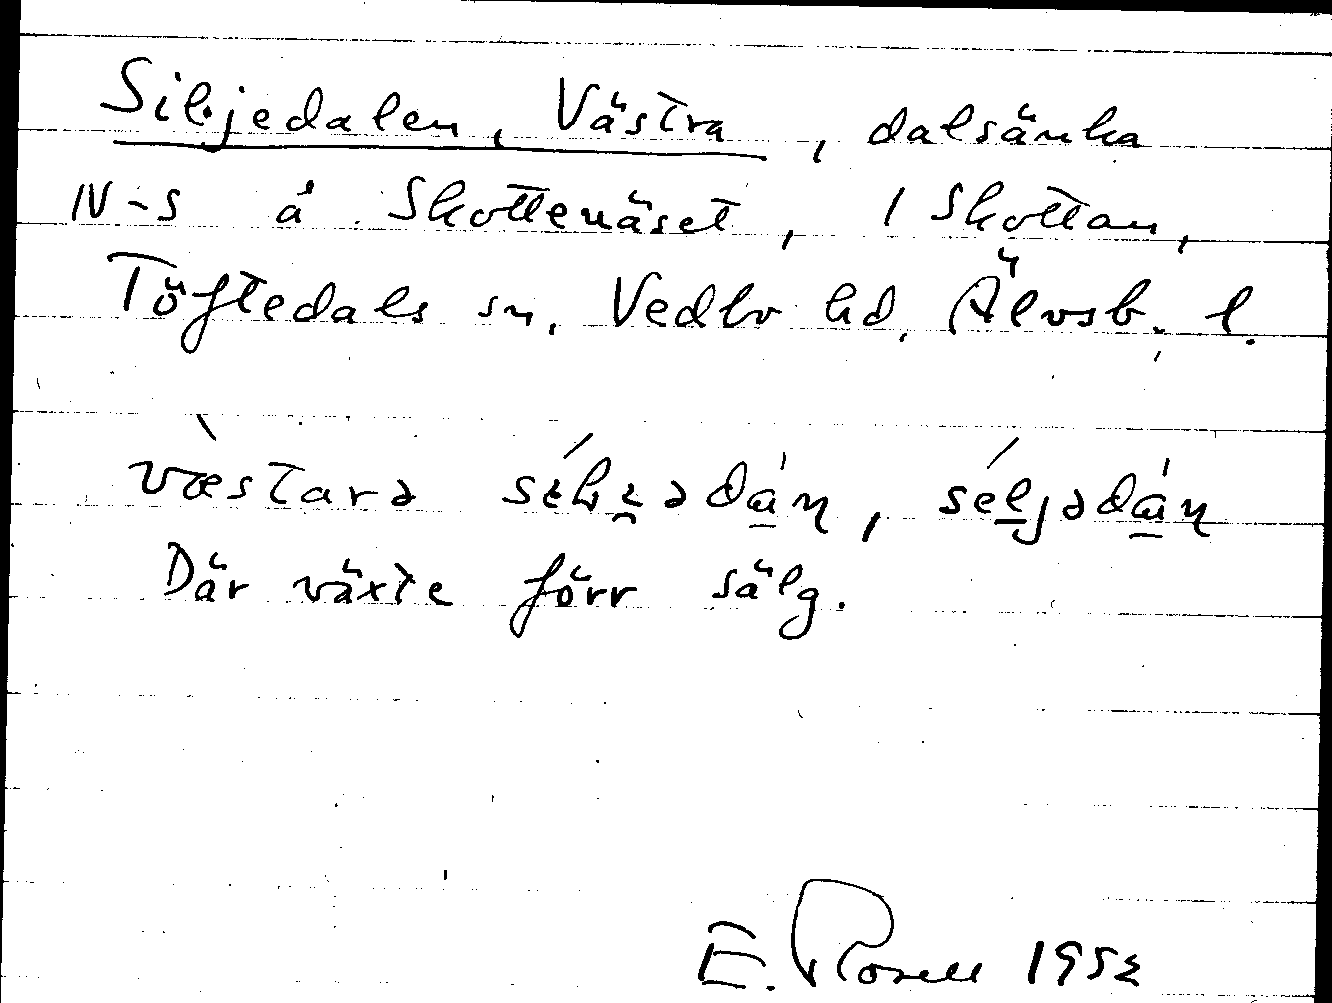 Siljedalen, Västra, dalsänka
N-S å Skottenäset, 1 Skottan,
Töftedals sn. Vedbo hd. Älvsb. l.
væstarə
Där växte förr sälg.
E. Rosell 1952